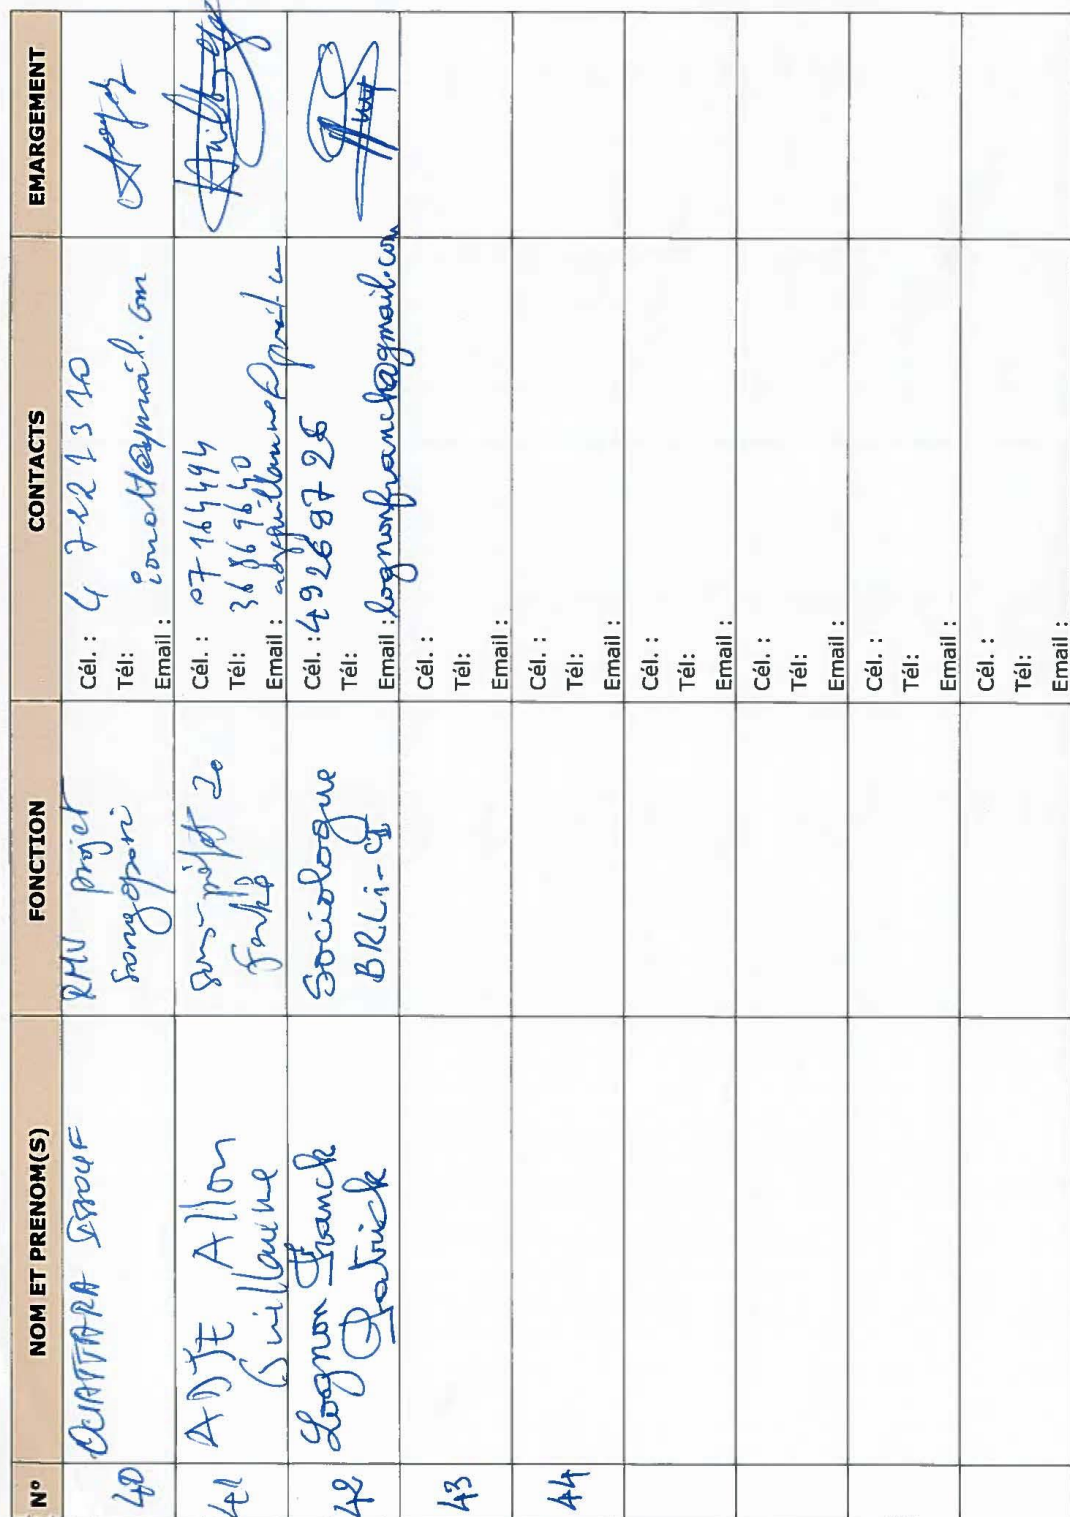 N° NOM ET PRENOM(S) FONCTION CONTACTS EMARGEMENT
40 OUATTARA ISSOUF
RMU projet
Cél. : 4 7221310
Tél:
Email :
41 ADJE Allou
Guillaume
sous-préfet
Ferké
Cél. : 07164494
Tél: 36869640
Email :
42 Lognon Franck
Patrick
Sociologue
BRLi-CI
Cél. : 49268726
Tél:
Email : lognonfranck@gmail.com
43
Cél. :
Tél:
Email :
44
Cél. :
Tél:
Cél. :
Tél:
Email :
Cél. :
Tél:
Email :
Cél. :
Tél:
Email :
Cél. :
Tél:
Email :